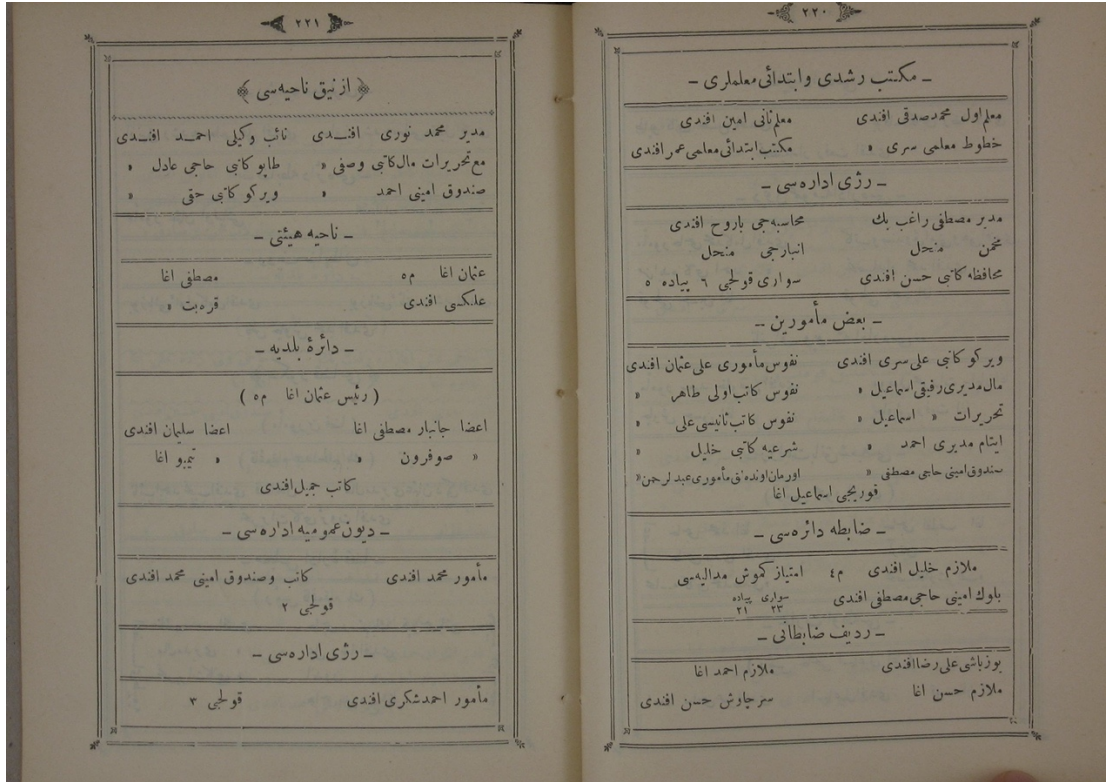 ٢٢٠
ـ مكتب رشدى وابتدائى معلملرى ـ
معلم اول محمد صدقى افندى معلم ثانى امين افندى
خطوط معلمى سرى » مكتب ابتدائى معلمى عمر افندى
ـ رژى اداره سى ـ
مدير مصطفى راغب بك محاسبه جى باروح افندى
مخمن منحل انبارجى منحل
محافظه كاتبى حسن افندى سوارى قولجى ٦ پياده ٥
ـ بعض مأمورين ـ
ويركو كاتبى على سرى افندى نفوس مأمورى على عثمان افندى
مال مديرى رفيقى اسماعيل » نفوس كاتب اولى طاهر »
تحريرات » اسماعيل » نفوس كاتب ثانيسى على »
ايتام مديرى احمد » شرعيه كاتبى خليل »
سندوق امينى حاجى مصطفى » اورمان اونده لق مأمورى عبدالرحمن »
قوريجى اسماعيل اغا
ـ ضابطه دائره سى ـ
ملازم خليل افندى م٤ امتياز كموش مداليه سى
بلوك امينى حاجى مصطفى افندى سوارى ٢٣ پياده ٢١
ـ رديف ضابطانى ـ
يوزباشى على رضا افندى ملازم احمد اغا
ملازم حسن اغا سرچاوش حسن افندى
٢٢١
﴿ ازنيق ناحيه سى ﴾
مدير محمد نورى افنــدى نائب وكيلى احمــد افنــدى
مع تحريرات مال كاتبى وصفى » طاپو كاتبى حاجى عادل »
صندوق امينى احمد » ويركو كاتبى حقى »
ـ ناحيه هيئتى ـ
عثمان اغا م٥ مصطفى اغا
علكسى افندى قره بت »
ـ دائرۀ بلديه ـ
( رئيس عثمان اغا م٥ )
اعضا جانبار مصطفى اغا اعضا سليمان افندى
» صوفرون » » تيمبو اغا
كاتب جميل افندى
ـ ديون عموميه اداره سى ـ
مأمور محمد افندى كاتب وصندوق امينى محمد افندى
قولجى ٢
ـ رژى اداره سى ـ
مأمور احمد شكرى افندى قولجى ٣